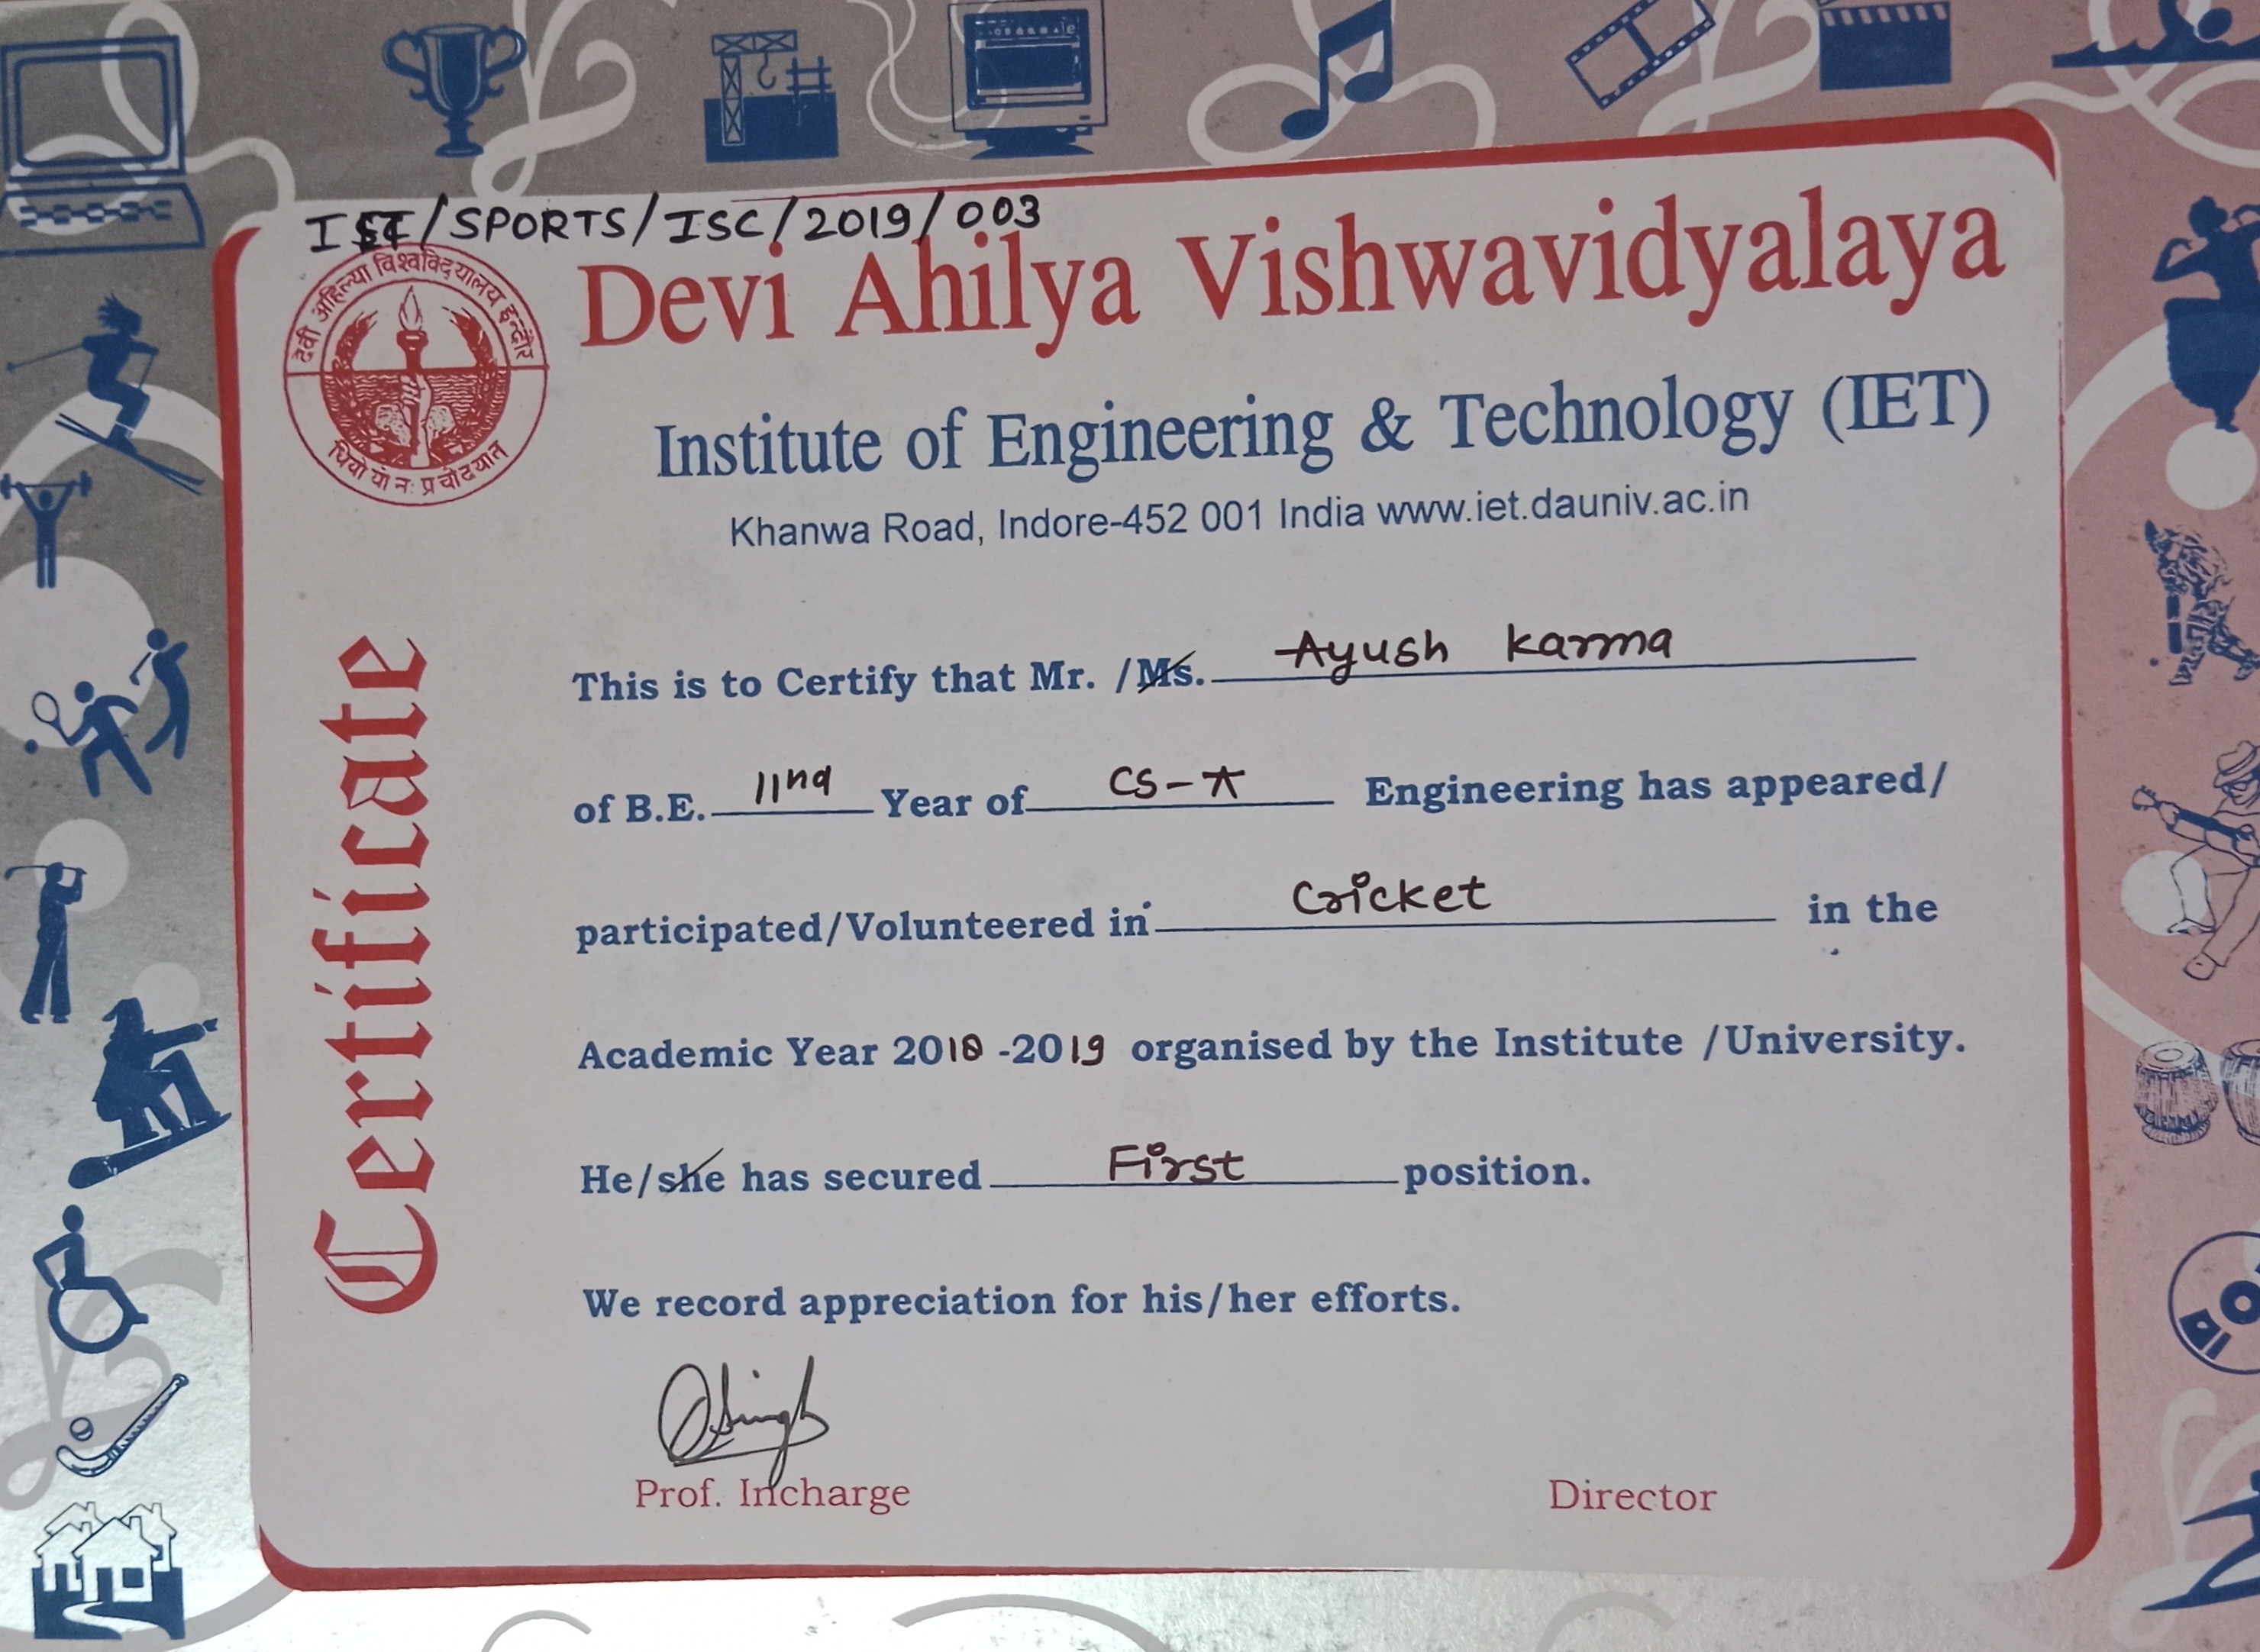 IET/SPORTS/ISC/2019/003
देवी अहिल्या विश्वविद्यालय इन्दौर
धियो यो नः प्रचोदयात्
Devi Ahilya Vishwavidyalaya
Institute of Engineering & Technology (IET)
Khanwa Road, Indore-452 001 India www.iet.dauniv.ac.in
Certificate
This is to Certify that Mr. /Ms. Ayush Karma
of B.E. IInd Year of CS-A Engineering has appeared/
participated/Volunteered in Cricket in the
Academic Year 2018 -2019 organised by the Institute /University.
He/she has secured First position.
We record appreciation for his/her efforts.
Prof. Incharge
Director